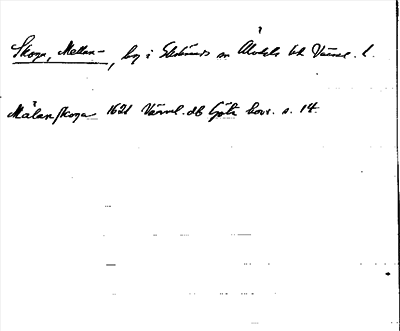 Skoga, Mellan-, by i Ekshärads sn Älvdals hd Värml. l.
Mälanskoga 1621 Värml. db Göta hovr. s. 14.